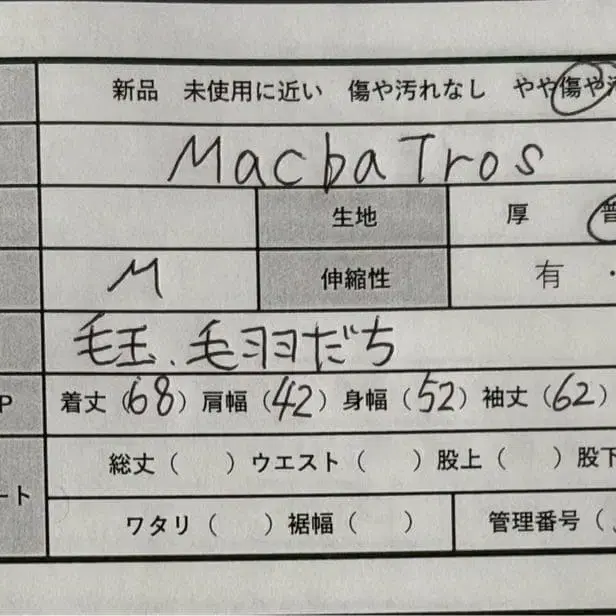 新品 未使用に近い 傷や汚れなし やや傷や汚
MacbaTros
生地 厚 普
M 伸縮性 有 ・
毛玉、毛羽だち
P 着丈(68) 肩幅(42) 身幅(52) 袖丈(62)
総丈( ) ウエスト( ) 股上( ) 股下
ート
ワタリ( ) 裾幅( ) 管理番号(